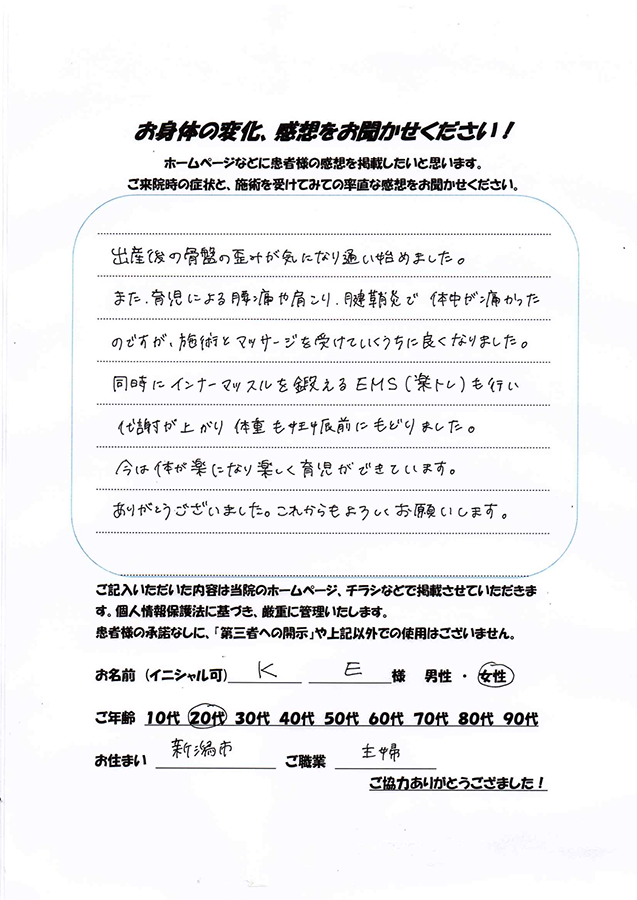 お身体の変化、感想をお聞かせください！
ホームページなどに患者様の感想を掲載したいと思います。
ご来院時の症状と、施術を受けてみての率直な感想をお聞かせください。
出産後の骨盤の歪みが気になり通い始めました。
また、育児による腰痛や肩こり、腱鞘炎で 体中が痛かった
のですが、施術とマッサージを受けていくうちに良くなりました。
同時にインナーマッスルを鍛えるEMS(楽トレ)も行い
代謝が上がり 体重も妊娠前にもどりました。
今は体が楽になり楽しく育児ができています。
ありがとうございました。これからもよろしくお願いします。
ご記入いただいた内容は当院のホームページ、チラシなどで掲載させていただきま
す。個人情報保護法に基づき、厳重に管理いたします。
患者様の承諾なしに、「第三者への開示」や上記以外での使用はございません。
お名前（イニシャル可） K E 様 男性 ・ 女性
ご年齢 10代 20代 30代 40代 50代 60代 70代 80代 90代
お住まい 新潟市 ご職業 主婦
ご協力ありがとうござました！